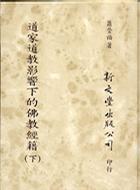 蕭登福 著
道家道教影響下的佛教經籍(下)
新文豐出版公司 印行